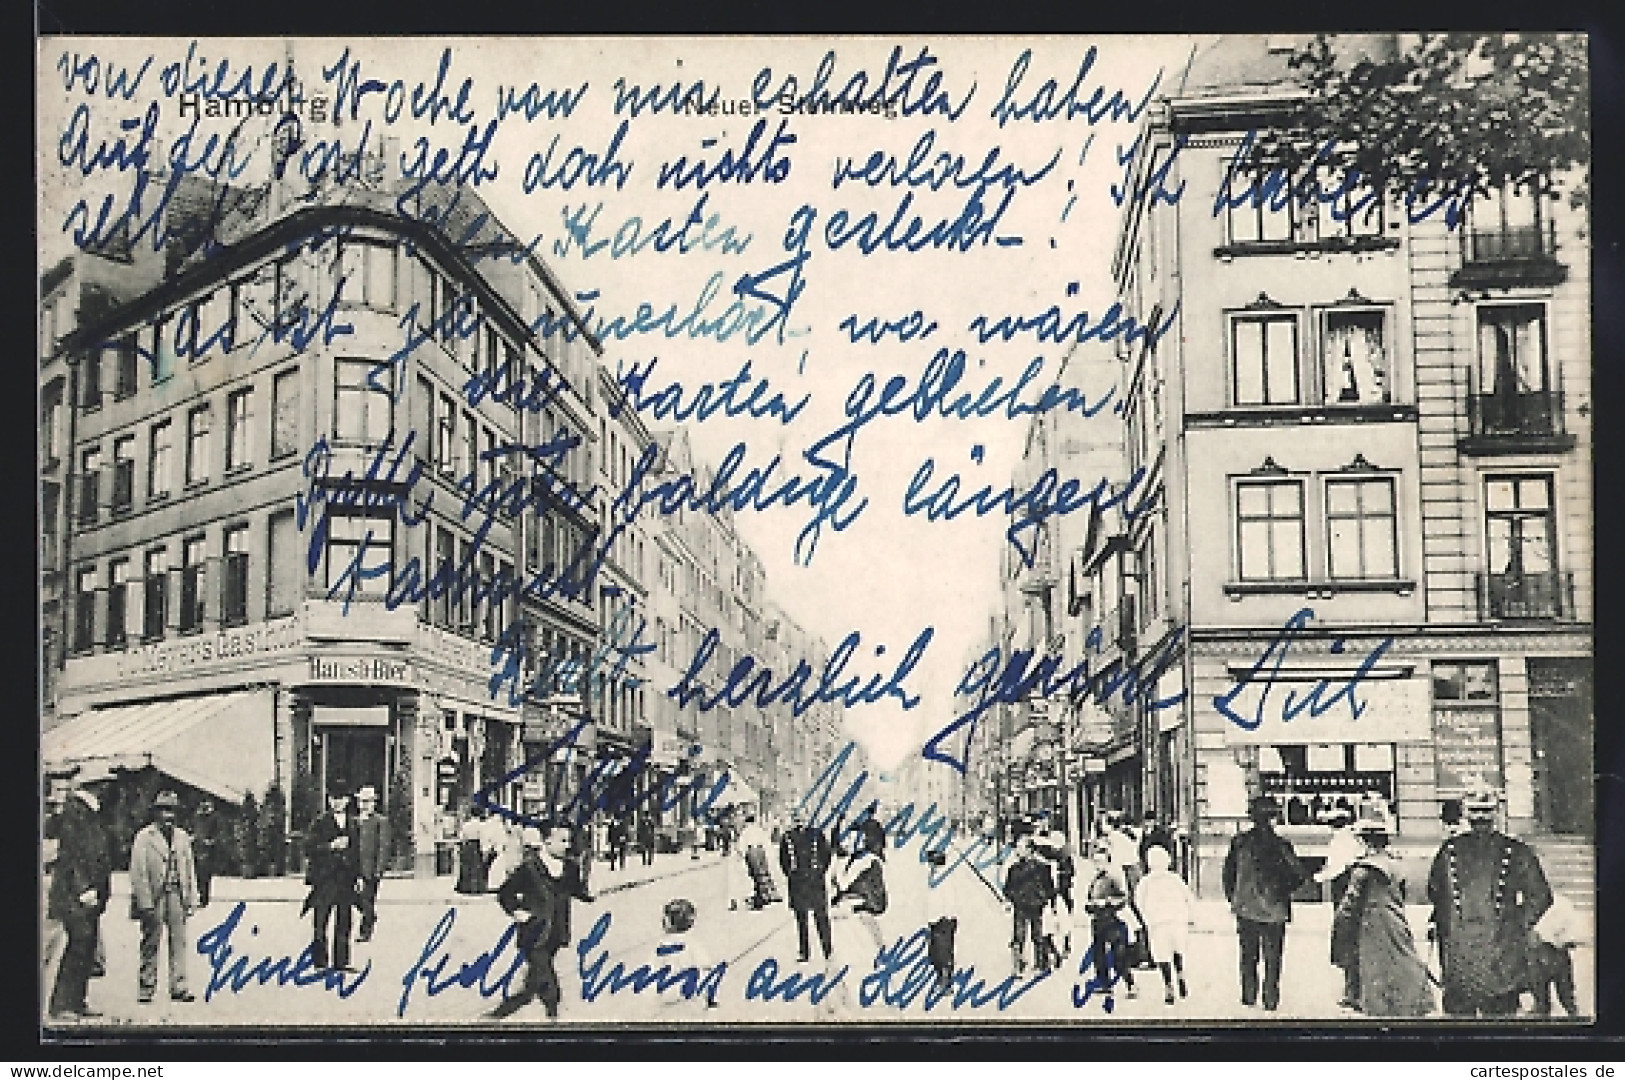 Hamburg Neuer Steinweg
von dieser Woche von mir erhalten haben
Auf der Post geth doch nichts verloren! Ich habe es
selbst in den Kasten gesteckt!
das ist ja unerhört, wo wären
die Karten geblieben.
Bitte um baldige längere
Nachricht.
Recht herzlich grüsst Dich
Deine
Einen frdl Gruss an Herrn P.
Gasthof
Hansa-Bier
www.cartespostales.de
cartespostales de